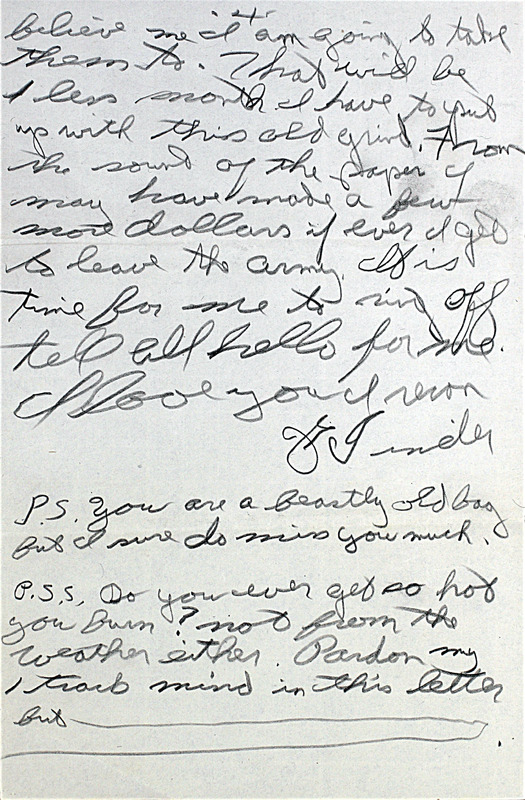 -4-
believe me I am going to take
them to. That will be
1 less month I have to put
up with this old grind. From
the sound of the paper I
may have made a few
more dollars if ever I get
to leave the army. It is
time for me to ring off
tell all hello for me.
I love you I recon
Tinder
P.S. You are a beastly old bag
but I sure do miss you much.
P.S.S. Do you ever get so hot
you burn? not from the
weather either. Pardon my
1 track mind in this letter
but